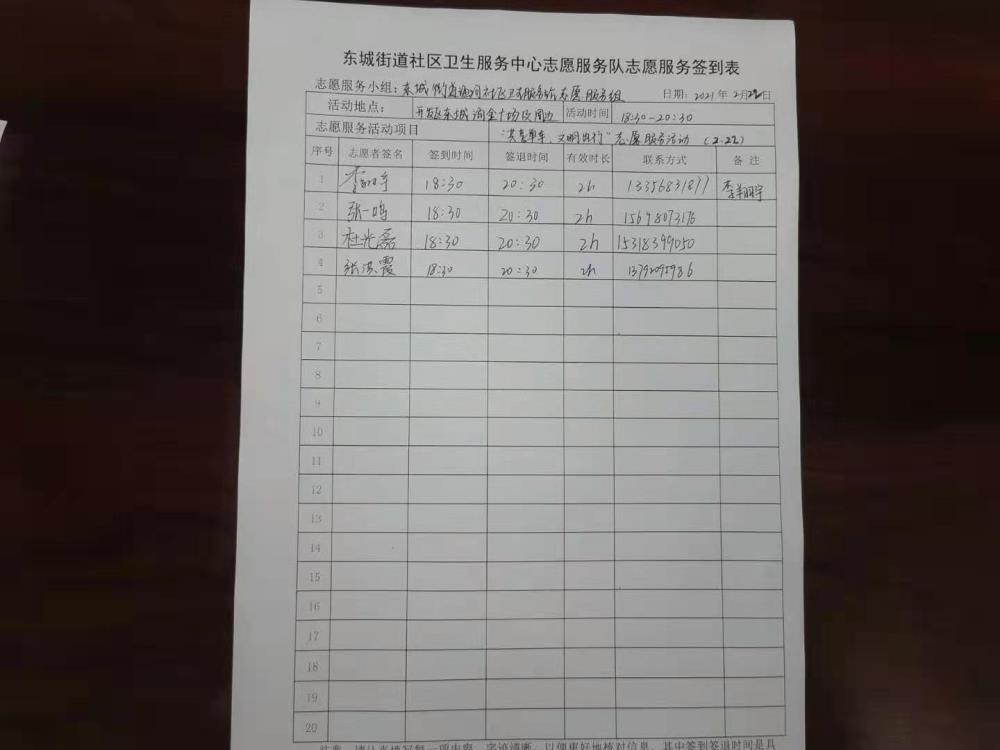 东城街道社区卫生服务中心志愿服务队志愿服务签到表
志愿服务小组：东城街道 社区卫生服务站志愿服务组 日期：2021年2月22日
活动地点： 开发区东城 淘金广场及周边 活动时间 18:30-20:30
志愿服务活动项目 “共享单车、文明出行”志愿服务活动（2.22）
序号 志愿者签名 签到时间 签退时间 有效时长 联系方式 备 注
1 李翔宇 18:30 20:30 2h 13356831877 李翔宇
2 张一鸣 18:30 20:30 2h 15698073176
3 杜光磊 18:30 20:30 2h 15318399050
4 张洪霞 18:30 20:30 2h 13792095986
5
6
7
8
9
10
11
12
13
14
15
16
17
18
19
20
注意：请认真填写每一项内容，字迹清晰，以便更好地核对信息，其中签到签退时间是具